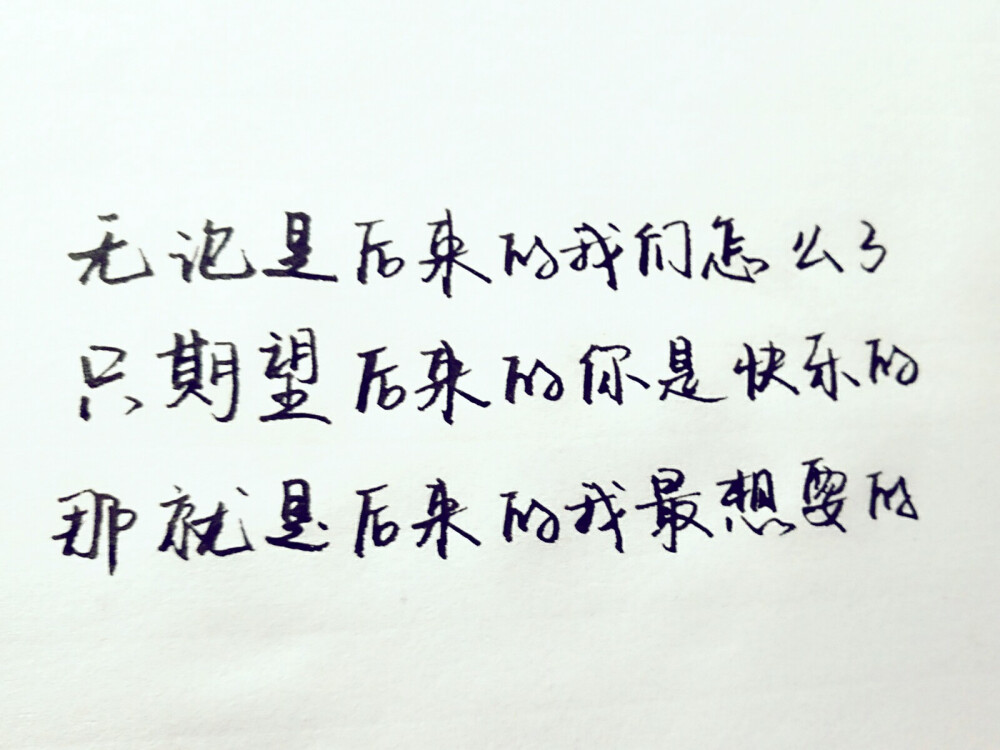 无论是后来的我们怎么了
只期望后来的你是快乐的
那就是后来的我最想要的